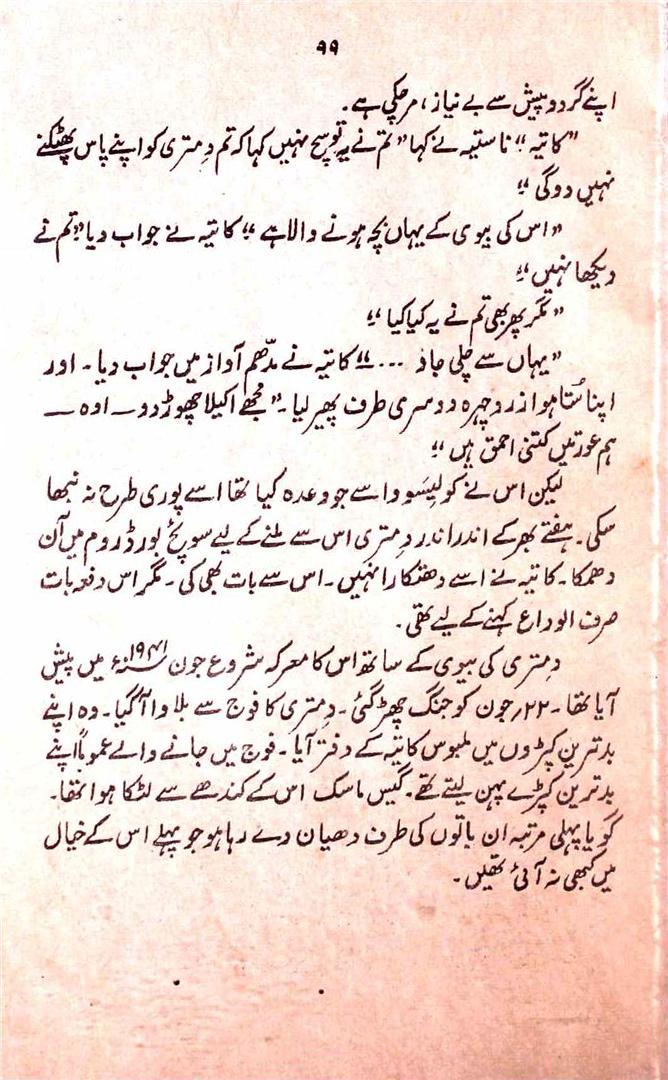 ۹۹
اپنے گردوپیش سے بے نیاز، مرچکی ہے۔
”کاتیہ“؛ ناستیہ نے کہا ”تم نے یہ تو سچ نہیں کہا کہ تم دِمتری کو اپنے پاس پھٹکنے
نہیں دوگی“؛
”اس کی بیوی کے یہاں بچہ ہونے والا ہے“؛ کاتیہ نے جواب دیا ”تم نے
دیکھا نہیں“؛
”مگر پھر بھی تم نے یہ کیا کیا“؛
”یہاں سے چلی جاؤ ...“ کاتیہ نے مدّھم آواز میں جواب دیا۔ اور
اپنا سُتا ہوا زرد چہرہ دوسری طرف پھیر لیا۔ ”مجھے اکیلا چھوڑ دو — اوہ —
ہم عورتیں کتنی احمق ہیں“؛
لیکن اس نے کولیسووا سے جو وعدہ کیا تھا اسے پوری طرح نہ نبھا
سکی۔ ہفتے بھر کے اندر اندر دِمتری اس سے ملنے کے لیے سوئچ بورڈ روم میں آن
دھمکا۔ کاتیہ نے اسے دھتکارا نہیں۔ اس سے بات بھی کی۔ مگر اس دفعہ بات
صرف الوداع کہنے کے لیے تھی۔
دِمتری کی بیوی کے ساتھ اس کا معرکہ شروع جون ۱۹۴۱ء میں پیش
آیا تھا۔ ۲۲؍ جون کو جنگ چھڑ گئی۔ دِمتری کا فوج سے بلاوا آگیا۔ وہ اپنے
بدترین کپڑوں میں ملبوس کاتیہ کے دفتر آیا۔ فوج میں جانے والے عموماً اپنے
بدترین کپڑے پہن لیتے تھے۔ گیس ماسک اس کے کندھے سے لٹکا ہوا تھا۔
گویا پہلی مرتبہ ان باتوں کی طرف دھیان دے رہا ہو جو پہلے اس کے خیال
میں کبھی نہ آئی تھیں۔